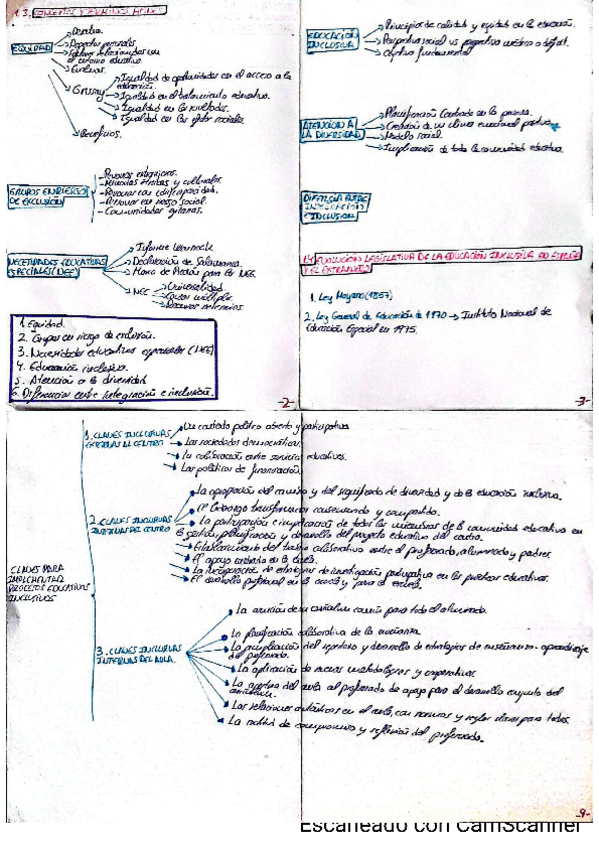 1.3. CONCEPTOS Y TÉRMINOS AFINES
EQUIDAD
Derecho.
Aspectos personales
Factores relacionados con
el entorno educativo.
Evaluar.
Grusay
Igualdad de oportunidades en el acceso a la
educación.
Igualdad en el tratamiento educativo.
Igualdad en los resultados.
Igualdad en los efectos sociales.
Beneficios.
GRUPOS EN RIESGO
DE EXCLUSIÓN
- Personas extranjeras.
- Minorías étnicas y culturales.
- Personas con discapacidad.
- Personas en riesgo social.
- Comunidades gitanas.
NECESIDADES EDUCATIVAS
ESPECIALES (NEE)
Informe Warnock
Declaración de Salamanca.
Marco de Acción para las NEE.
NEE
Universalidad
Causa múltiple.
Recursos necesarios
1. Equidad.
2. Grupos en riesgo de exclusión.
3. Necesidades educativas especiales (NEE)
4. Educación inclusiva.
5. Atención a la diversidad
6. Diferencias entre integración e inclusión.
-2-
EDUCACIÓN
INCLUSIVA
Principios de calidad y equidad en la educación.
Perspectiva social vs perspectiva médica o déficit.
Objetivo fundamental
ATENCIÓN A
LA DIVERSIDAD
Planificación centrada en la persona.
Creación de un clima emocional positivo
Modelo social.
Implicación de toda la comunidad educativa.
DIFERENCIA ENTRE
INTEGRACIÓN
E INCLUSIÓN
1.4 EVOLUCIÓN LEGISLATIVA DE LA EDUCACIÓN INCLUSIVA EN ESPAÑA
Y EL EXTRANJERO
1. Ley Moyano (1857)
2. Ley General de Educación de 1970 → Instituto Nacional de
Educación Especial en 1975.
-3-
CLAVES PARA
IMPLEMENTAR
PROCESOS EDUCATIVOS
INCLUSIVOS
1. CLAVES INCLUSIVAS
EXTERNAS AL CENTRO
Un contexto político abierto y participativo
Las sociedades democráticas.
La colaboración entre servicios educativos.
Las políticas de financiación.
2. CLAVES INCLUSIVAS
INTERNAS DEL CENTRO
La apropiación del camino y del significado de diversidad y de la educación inclusiva.
El liderazgo transformador consensuado y compartido.
La participación e implicación de todos los miembros de la comunidad educativa en
la gestión, planificación y desarrollo del proyecto educativo del centro.
Establecimiento del trabajo colaborativo entre el profesorado, alumnado y padres.
El apoyo centrado en la escuela.
La incorporación de estrategias de investigación participativa en las prácticas educativas.
El desarrollo profesional en la escuela y para la escuela.
3. CLAVES INCLUSIVAS
INTERNAS DEL AULA.
La asunción de un currículum común para todo el alumnado.
La planificación colaborativa de la enseñanza.
La ampliación del repertorio y desarrollo de estrategias de enseñanza - aprendizaje
del profesorado.
La aplicación de nuevas metodologías y cooperativas.
La apertura del aula al profesorado de apoyo para el desarrollo conjunto del
currículum.
Las relaciones auténticas en el aula, con normas y reglas claras para todos.
La actitud de compromiso y reflexión del profesorado.
-9-
Escaneado con CamScanner